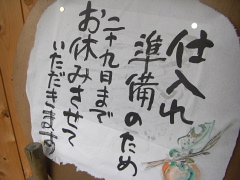 仕入れ
準備のため
二十九日まで
お休みさせて
いただきます